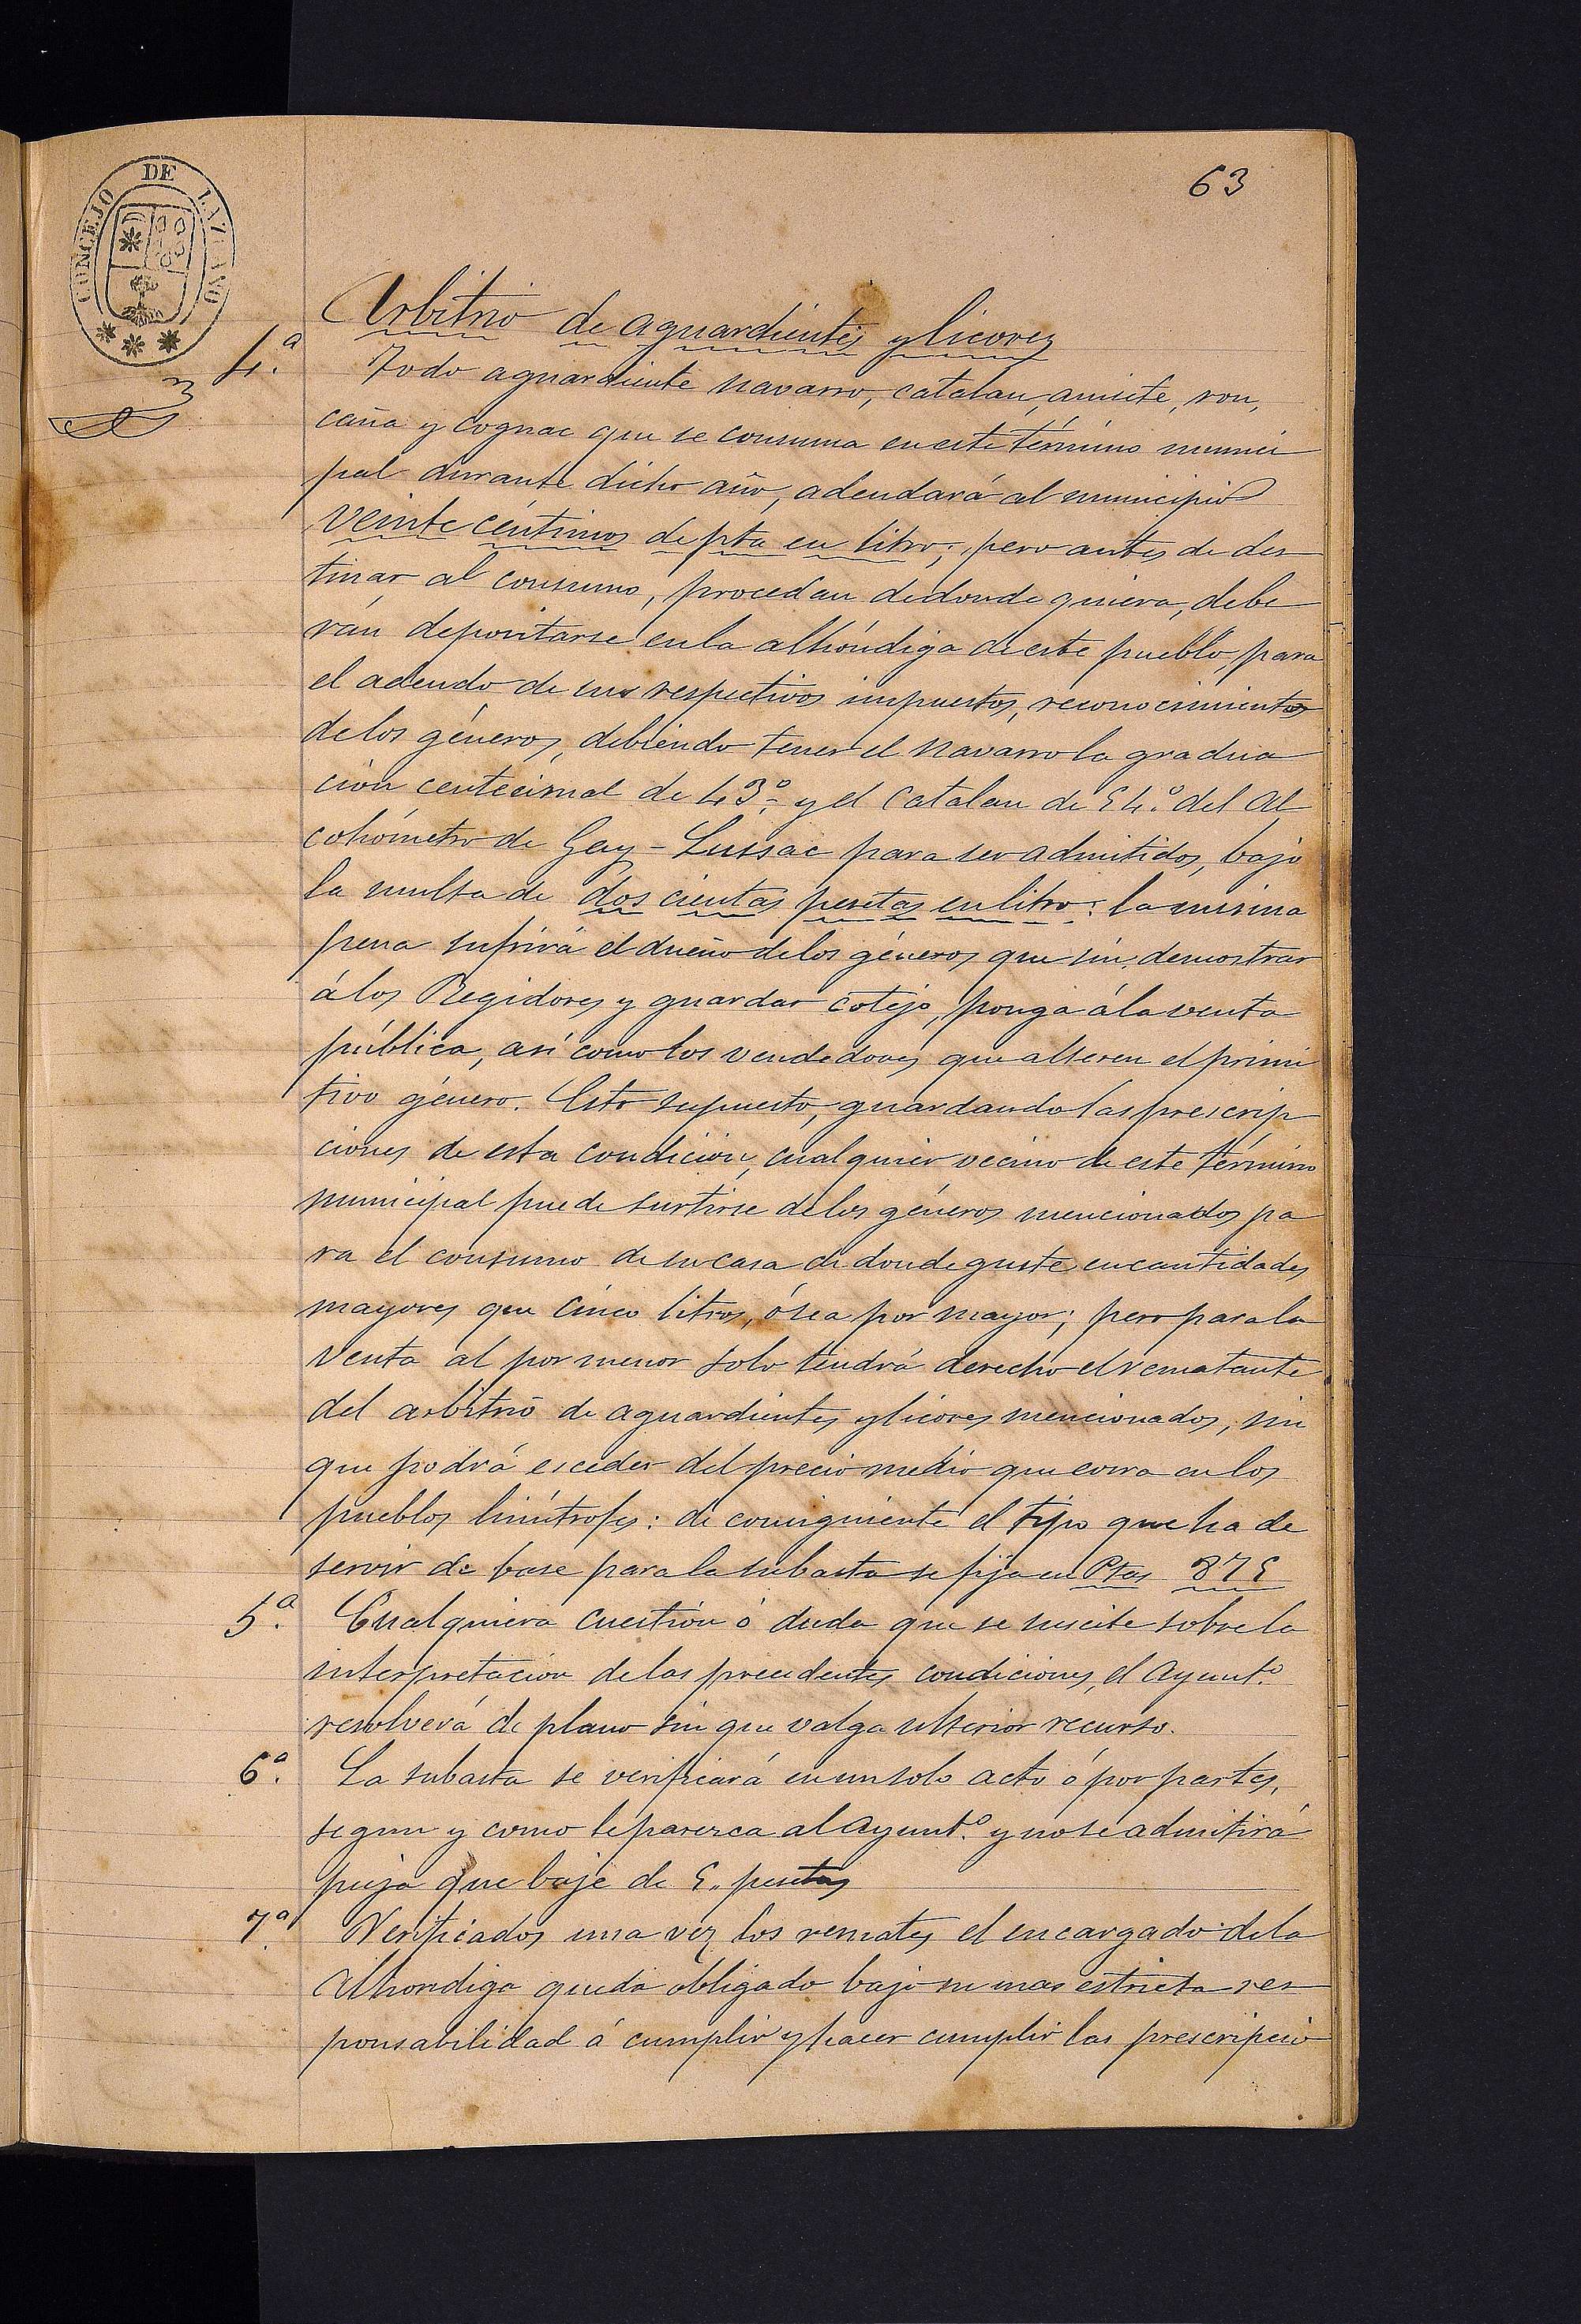 63
CONCEJO DE LAZCANO
Arbitrio de aguardientes y licores
4.ª Todo aguardiente navarro, catalan, anisete, ron,
caña y cognac que se consuma en este término munici
pal durante dicho año, adeudará al municipio
veinte céntimos de pta en litro; pero antes de des
tinar al consumo, procedan de donde quiera, debe
rán depositarse en la alhóndiga de este pueblo para
el adeudo de sus respectivos impuestos, reconocimientos
de los géneros, debiendo tener el navarro la gradua
ción centecimal de 43.º y el catalan de 54.º del Al
cohómetro de Gay-Lussac para ser admitidos, bajo
la multa de dos cientas pesetas en litro: la misma
pena sufrirá el dueño de los géneros que sin demostrar
á los Regidores y guardar cotejo, ponga á la venta
pública, así como los vendedores que alteren el primi
tivo género. Esto supuesto, guardando las prescrip
ciones de esta condición, cualquier vecino de este término
municipal puede surtirse de los géneros mencionados pa
ra el consumo de su casa de donde guste en cantidades
mayores que cinco litros, ó sea por mayor; pero para la
venta al por menor solo tendrá derecho el rematante
del arbitrio de aguardientes y licores mencionados, sin
que podrá esceder del precio medio que corra en los
pueblos limítrofes: de consiguiente el tipo que ha de
servir de base para la subasta se fija en Ptas 875
5.ª Cualquiera cuestión ó duda que se suscite sobre la
interpretación de las precedentes condiciones, el Ayunt.º
resolverá de plano sin que valga ulterior recurso.
6.ª La subasta se verificará en un solo acto ó por partes,
segun y como le parezca al Ayunt.º y no se admitirá
puja que baje de 5,, pesetas
7.ª Verificados una vez los remates el encargado de la
Alhondiga queda obligado bajo su mas estricta res
ponsabilidad á cumplir y hacer cumplir las prescripcio